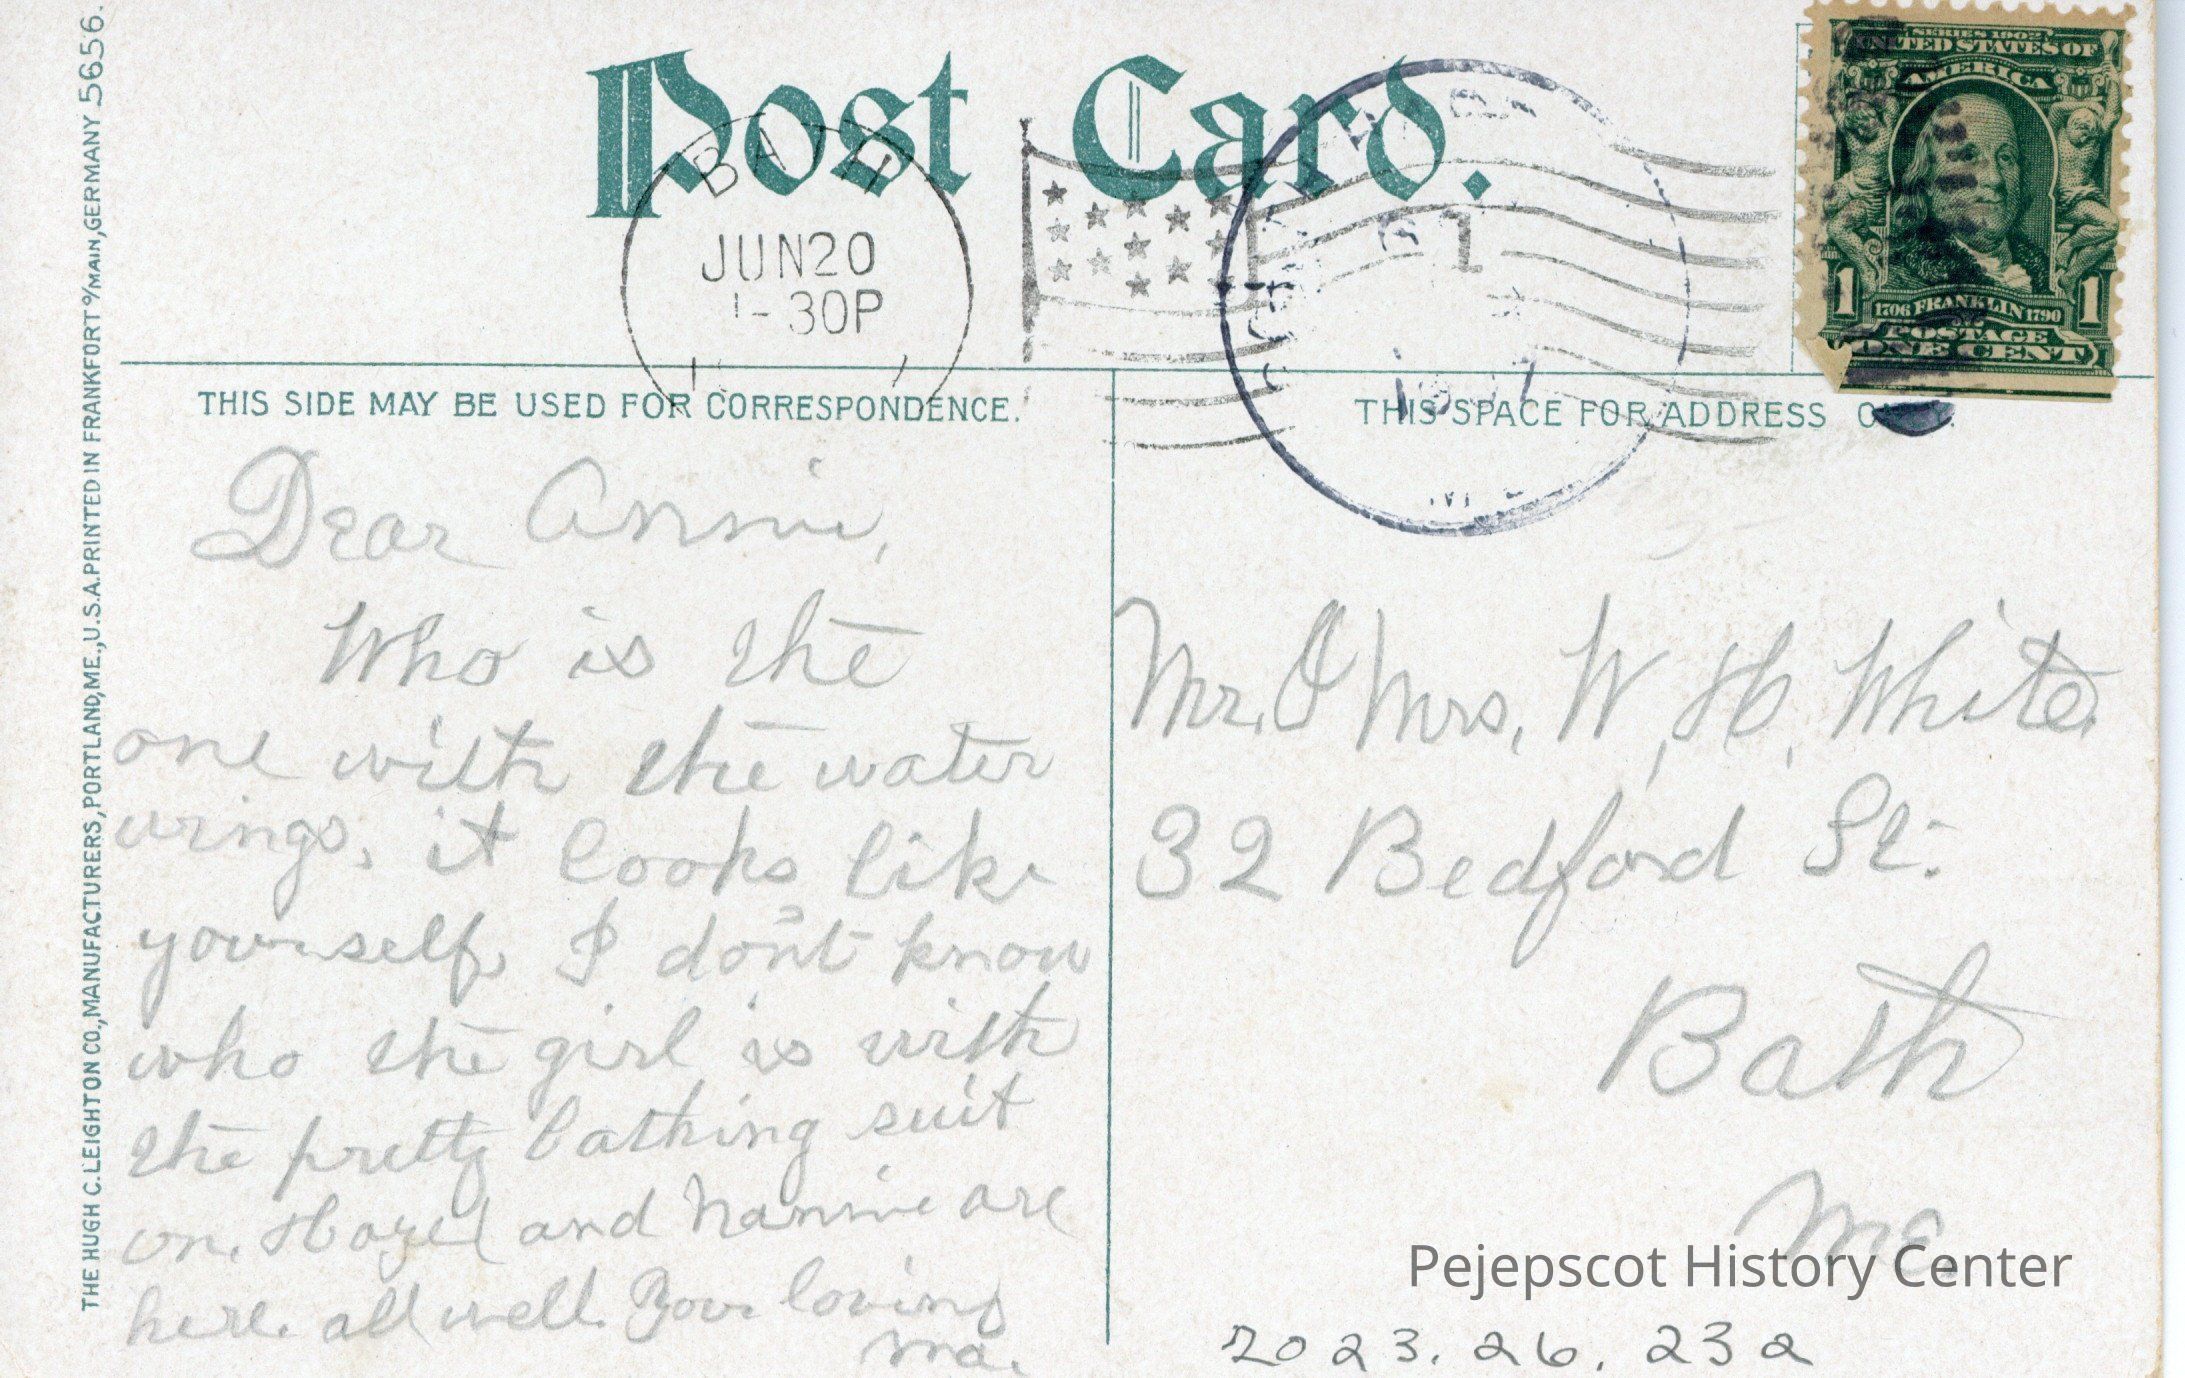 Post Card.
BATH
JUN 20
1-30P
SERIES 1902
UNITED STATES OF
AMERICA
1 1706 FRANKLIN 1790 1
POSTAGE
ONE CENT
THIS SIDE MAY BE USED FOR CORRESPONDENCE.
THIS SPACE FOR ADDRESS
THE HUGH C. LEIGHTON CO., MANUFACTURERS, PORTLAND, ME., U.S.A. PRINTED IN FRANKFORT O/MAIN, GERMANY 5656.
Dear Annie,
Who is the
one with the water
wings, it looks like
yourself, I don't know
who the girl is with
the pretty bathing suit
on. Hazel and Nannie are
here. all well. Your loving
Ma.
Mr. & Mrs. W. H. White.
32 Bedford St.
Bath
Me.
Pejepscot History Center
2023.26.232